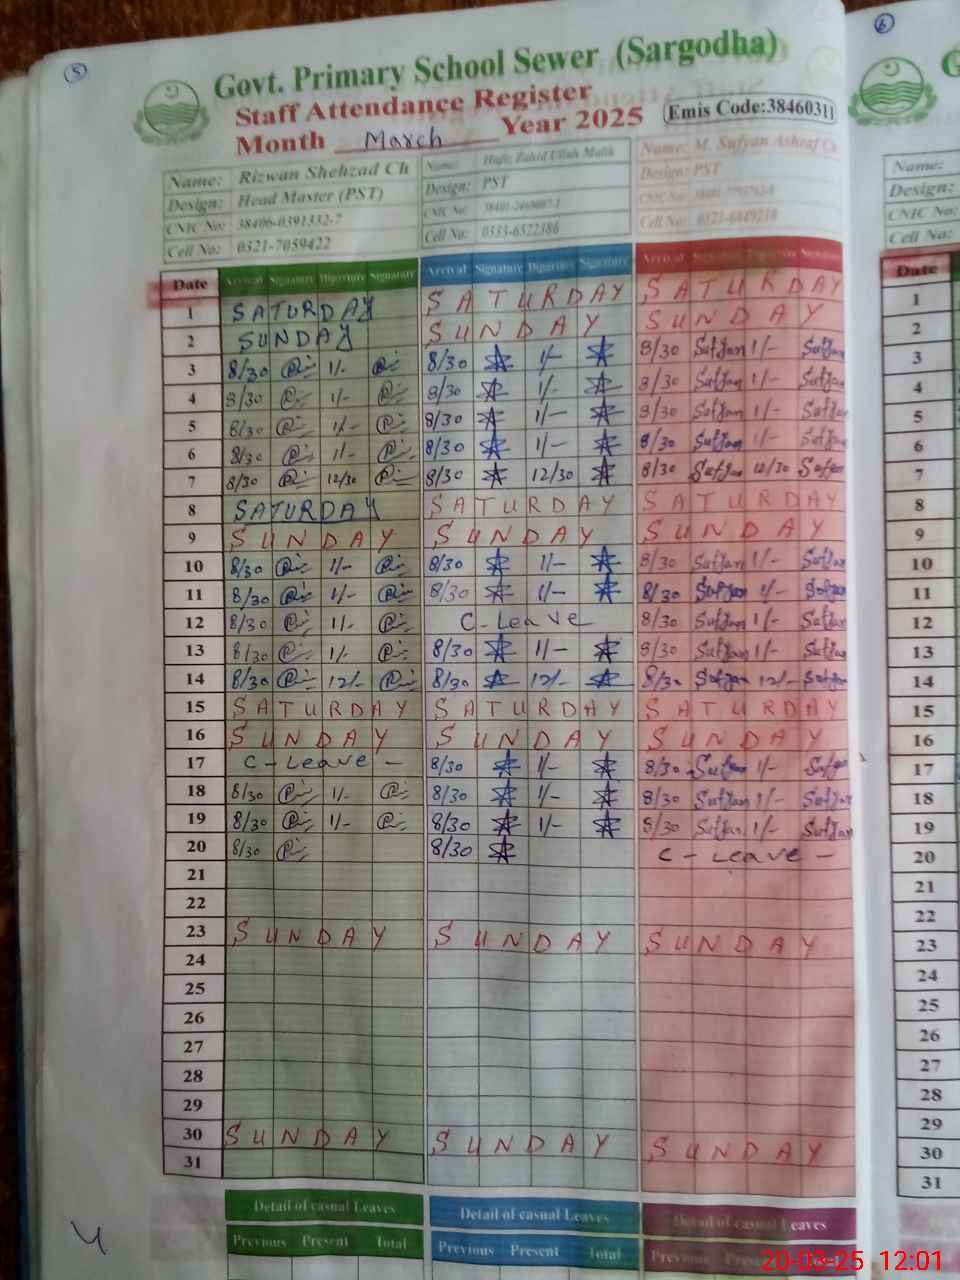 5
6
Govt. Primary School Sewer (Sargodha)
Staff Attendance Register
Month March Year 2025
Emis Code:38460311
Name: Rizwan Shehzad Ch
Design: Head Master (PST)
CNIC No: 38406-0391332-7
Cell No: 0321-7059422
Name: Hafiz Zahid Ullah Malik
Design: PST
CNIC No:
Cell No: 0333-6522386
Name: M. Sufyan Ashraf Ch
Design: PST
CNIC No:
Cell No: 0321-6049218
Name:
Design:
CNIC No:
Cell No:
Date Arrival Signature Diparture Signature Arrival Signature Diparture Signature Arrival Signature Diparture Date
1 SATURDAY SATURDAY SATURDAY 1
2 SUNDAY SUNDAY SUNDAY 2
3 8/30 1/- 8/30 1/- 8/30 Sufyan 1/- Sufyan 3
4 8/30 1/- 8/30 1/- 8/30 Sufyan 1/- Sufyan 4
5 8/30 1/- 8/30 1/- 8/30 Sufyan 1/- Sufyan 5
6 8/30 1/- 8/30 1/- 8/30 Sufyan 1/- Sufyan 6
7 8/30 12/30 8/30 12/30 8/30 Sufyan 12/30 Sufyan 7
8 SATURDAY SATURDAY SATURDAY 8
9 SUNDAY SUNDAY SUNDAY 9
10 8/30 1/- 8/30 1/- 8/30 Sufyan 1/- Sufyan 10
11 8/30 1/- 8/30 1/- 8/30 Sufyan 1/- Sufyan 11
12 8/30 1/- C-Leave 8/30 Sufyan 1/- Sufyan 12
13 8/30 1/- 8/30 1/- 8/30 Sufyan 1/- Sufyan 13
14 8/30 12/- 8/30 12/- 8/30 Sufyan 12/- Sufyan 14
15 SATURDAY SATURDAY SATURDAY 15
16 SUNDAY SUNDAY SUNDAY 16
17 C-Leave - 8/30 1/- 8/30 Sufyan 1/- Sufyan 17
18 8/30 1/- 8/30 1/- 8/30 Sufyan 1/- Sufyan 18
19 8/30 1/- 8/30 1/- 8/30 Sufyan 1/- Sufyan 19
20 8/30 8/30 C-Leave - 20
21 21
22 22
23 SUNDAY SUNDAY SUNDAY 23
24 24
25 25
26 26
27 27
28 28
29 29
30 SUNDAY SUNDAY SUNDAY 30
31 31
Detail of casual Leaves Detail of casual Leaves Detail of casual Leaves
Previous Present Total Previous Present Total Previous
20-03-25 12:01